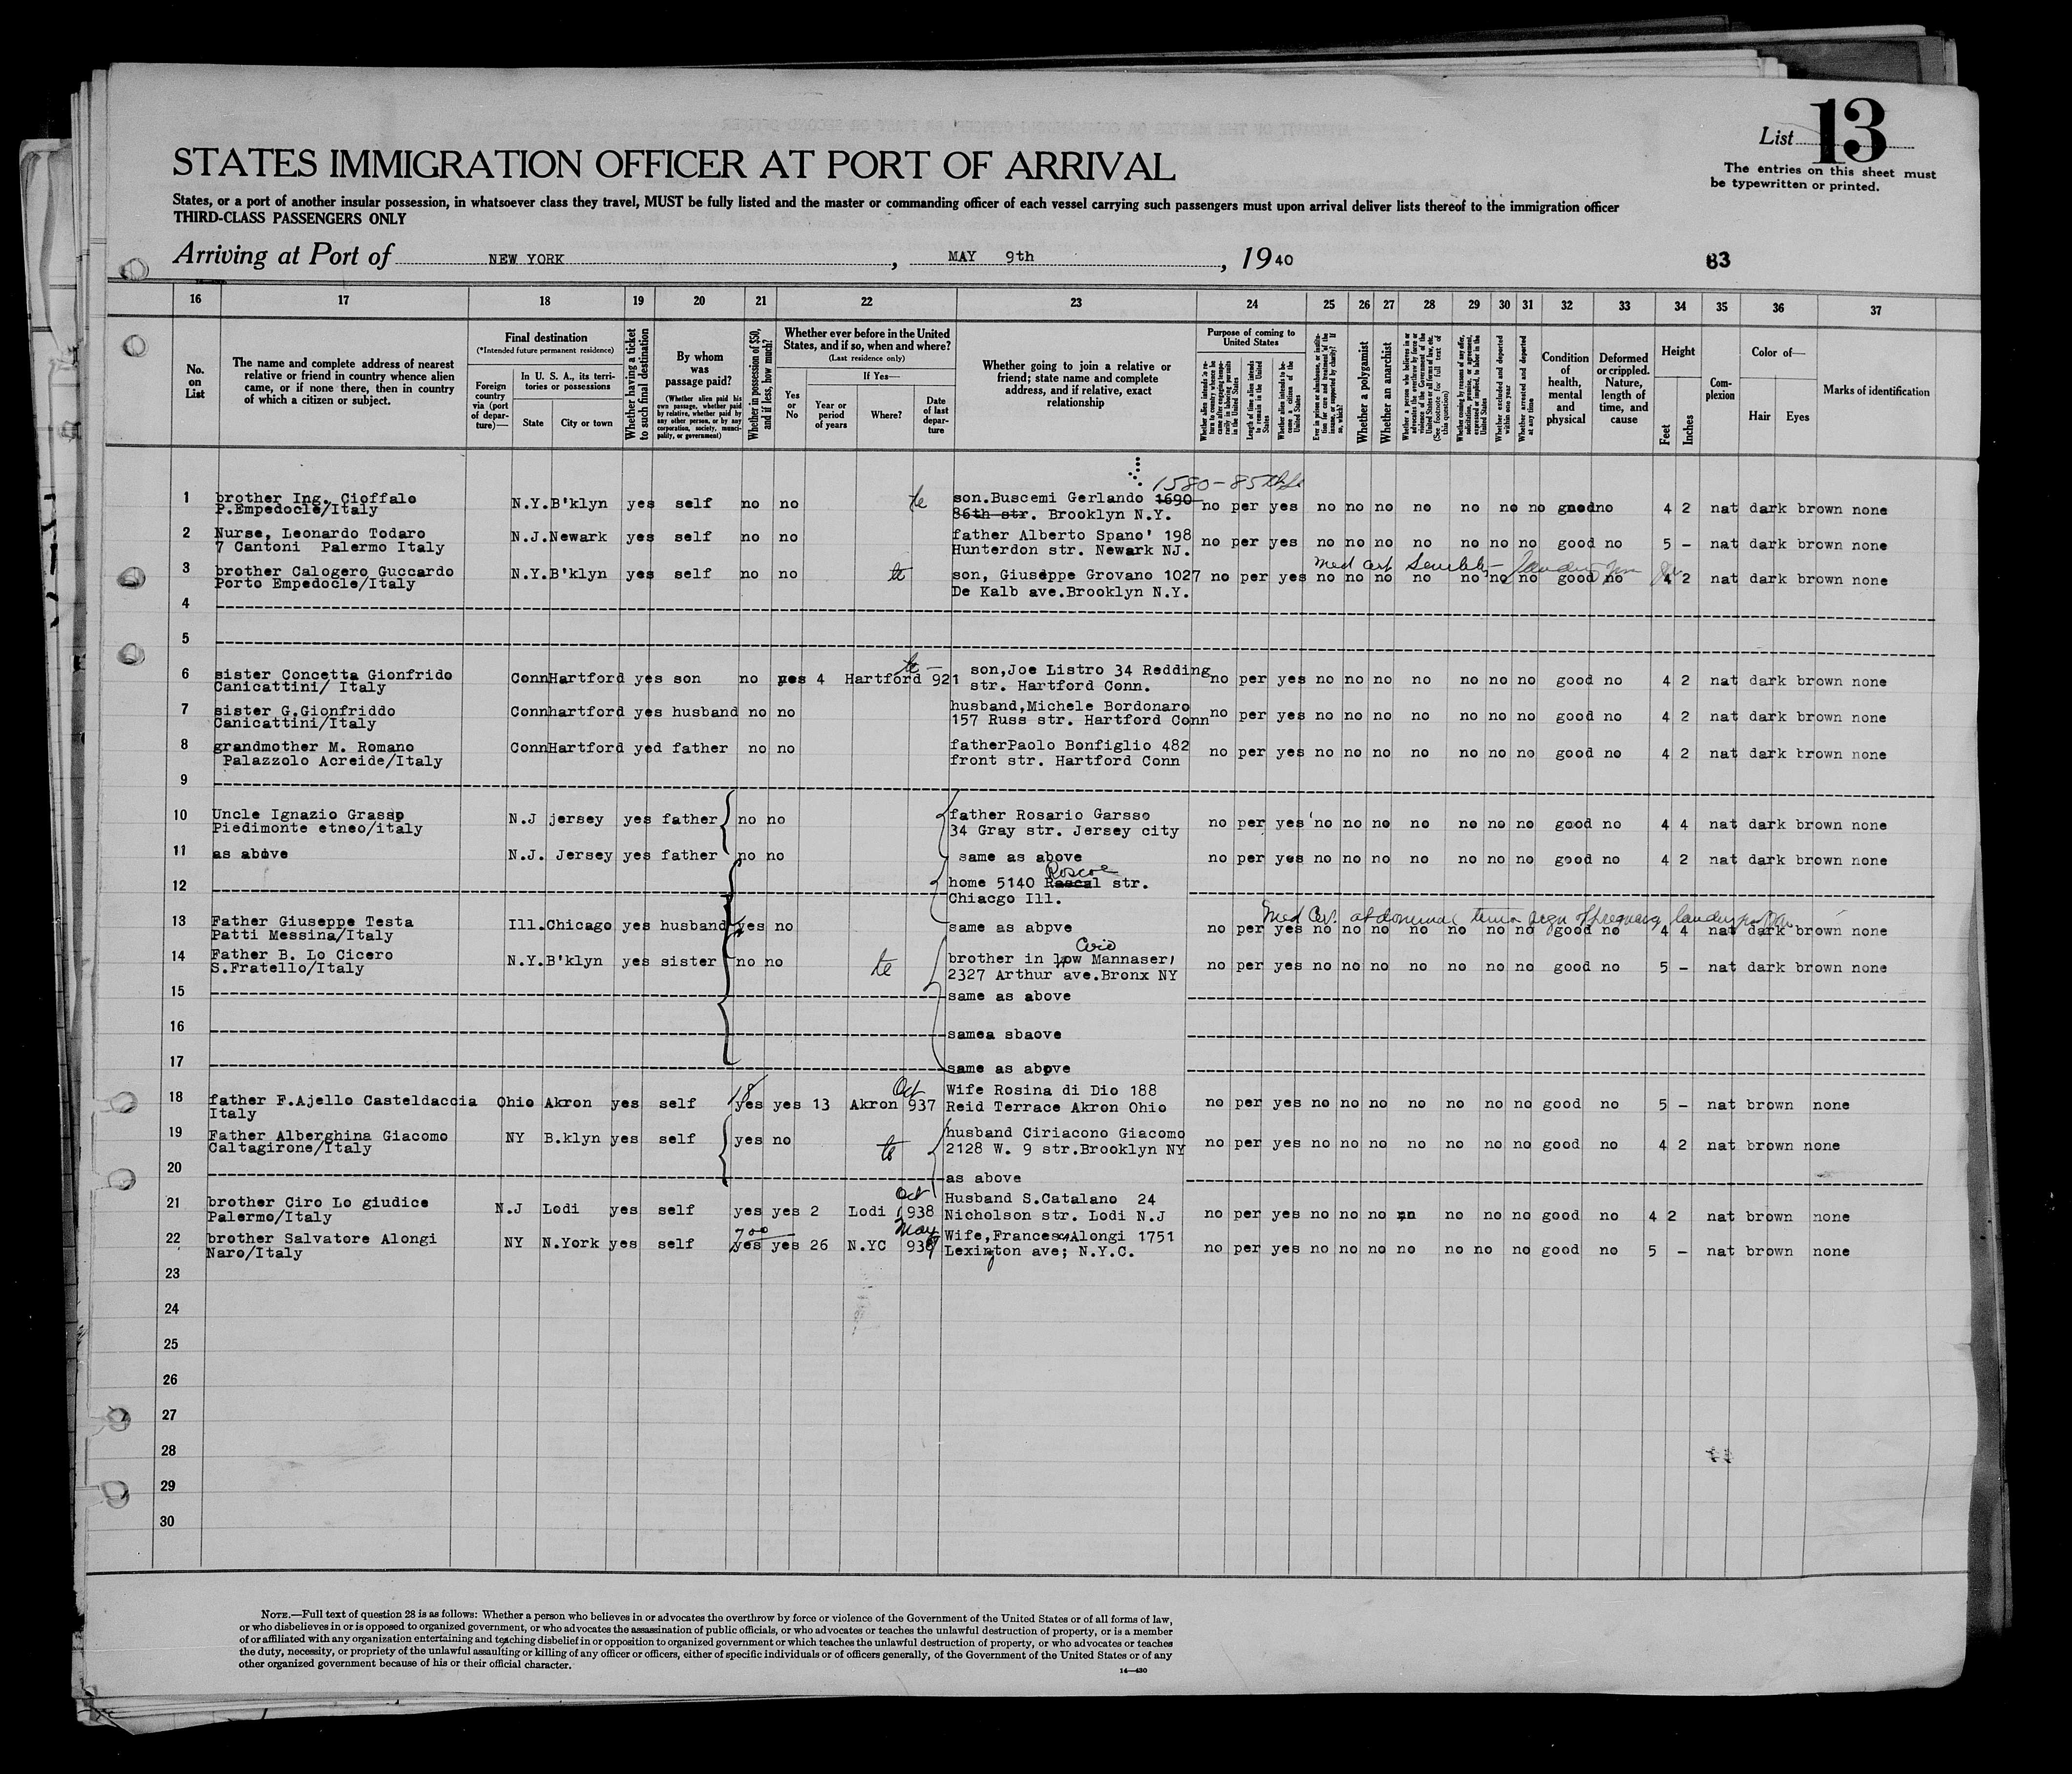 List 13
The entries on this sheet must
be typewritten or printed.
STATES IMMIGRATION OFFICER AT PORT OF ARRIVAL
States, or a port of another insular possession, in whatsoever class they travel, MUST be fully listed and the master or commanding officer of each vessel carrying such passengers must upon arrival deliver lists thereof to the immigration officer
THIRD-CLASS PASSENGERS ONLY
Arriving at Port of NEW YORK, MAY 9th, 1940
83
16 17 18 19 20 21 22 23 24 25 26 27 28 29 30 31 32 33 34 35 36 37
No. on List
The name and complete address of nearest relative or friend in country whence alien came, or if none there, then in country of which a citizen or subject.
Final destination
(*Intended future permanent residence)
Foreign country via (port of departure)—
In U. S. A., its territories or possessions
State
City or town
Whether having a ticket to such final destination
By whom was passage paid?
(Whether alien paid his own passage, whether paid by relative, whether paid by any other person, or by any corporation, society, municipality, or government)
Whether in possession of $50, and if less, how much?
Whether ever before in the United States, and if so, when and where?
(Last residence only)
Yes or No
If Yes—
Year or period of years
Where?
Date of last departure
Whether going to join a relative or friend; state name and complete address, and if relative, exact relationship
Purpose of coming to United States
Whether alien intends to return to country whence he came after engaging temporarily in laboring pursuits in the United States
Length of time alien intends to remain in the United States
Whether alien intends to become a citizen of the United States
Ever in prison or almshouse, or institution for care and treatment of the insane, or supported by charity? If so, which?
Whether a polygamist
Whether an anarchist
Whether a person who believes in or advocates the overthrow by force or violence of the Government of the United States or all forms of law, etc. (See footnote for full text of this question)
Whether coming by reasons of any offer, solicitation, promise, or agreement, expressed or implied, to labor in the United States
Whether excluded and deported within one year
Whether arrested and deported at any time
Condition of health, mental and physical
Deformed or crippled. Nature, length of time, and cause
Height
Feet
Inches
Complexion
Color of—
Hair
Eyes
Marks of identification
1580-85th
1 brother Ing. Cioffalo N.Y. B'klyn yes self no no te son.Buscemi Gerlando 1690 no per yes no no no no no no no good no 4 2 nat dark brown none
P.Empedocle/Italy 86th str. Brooklyn N.Y.
2 Nurse, Leonardo Todaro N.J. Newark yes self no no father Alberto Spano' 198 no per yes no no no no no no no good no 5 - nat dark brown none
7 Cantoni Palermo Italy Hunterdon str. Newark NJ.
med cert Senility
3 brother Calogero Guccardo N.Y. B'klyn yes self no no te son, Giuseppe Grovano 1027 no per yes no no no no no no no good no 4 2 nat dark brown none
Porto Empedocle/Italy De Kalb ave.Brooklyn N.Y.
4
5
te
6 sister Concetta Gionfrido Conn Hartford yes son no yes 4 Hartford 921 son,Joe Listro 34 Redding no per yes no no no no no no no good no 4 2 nat dark brown none
Canicattini/ Italy str. Hartford Conn.
7 sister G.Gionfriddo Conn hartford yes husband no no husband,Michele Bordonaro no per yes no no no no no no no good no 4 2 nat dark brown none
Canicattini/Italy 157 Russ str. Hartford Conn
8 grandmother M. Romano Conn Hartford yed father no no fatherPaolo Bonfiglio 482 no per yes no no no no no no no good no 4 2 nat dark brown none
Palazzolo Acreide/Italy front str. Hartford Conn
9
10 Uncle Ignazio Grasso N.J jersey yes father no no father Rosario Garsso no per yes no no no no no no no good no 4 4 nat dark brown none
Piedimonte etneo/italy 34 Gray str. Jersey city
11 as above N.J. Jersey yes father no no same as above no per yes no no no no no no no good no 4 2 nat dark brown none
Roscoe
12 home 5140 Rascal str.
Chiacgo Ill.
Med Cer. abdominal
13 Father Giuseppe Testa Ill. Chicago yes husband yes no same as abpve no per yes no no no no no no no good no 4 4 nat dark brown none
Patti Messina/Italy
14 Father B. Lo Cicero N.Y. B'klyn yes sister no no te brother in low Mannaser no per yes no no no no no no no good no 5 - nat dark brown none
S.Fratello/Italy 2327 Arthur ave.Bronx NY
15 same as above
16 samea sbaove
17 same as abpve
18 Oct
18 father F.Ajello Casteldaccia Ohio Akron yes self yes yes 13 Akron 937 Wife Rosina di Dio 188 no per yes no no no no no no no good no 5 - nat brown none
Italy Reid Terrace Akron Ohio
19 Father Alberghina Giacomo NY B.klyn yes self yes no te husband Ciriacono Giacomo no per yes no no no no no no no good no 4 2 nat brown none
Caltagirone/Italy 2128 W. 9 str.Brooklyn NY
20 as above
Oct
21 brother Ciro Lo giudice N.J Lodi yes self yes yes 2 Lodi 1938 Husband S.Catalano 24 no per yes no no no no no no good no 4 2 nat brown none
Palermo/Italy Nicholson str. Lodi N.J
700 May
22 brother Salvatore Alongi NY N.York yes self yes yes 26 N.YC 939 Wife,Frances Alongi 1751 no per yes no no no no no no no good no 5 - nat brown none
Naro/Italy Lexington ave; N.Y.C.
23
24
25
26
27
28
29
30
NOTE.—Full text of question 28 is as follows: Whether a person who believes in or advocates the overthrow by force or violence of the Government of the United States or of all forms of law,
or who disbelieves in or is opposed to organized government, or who advocates the assassination of public officials, or who advocates or teaches the unlawful destruction of property, or is a member
of or affiliated with any organization entertaining and teaching disbelief in or opposition to organized government or which teaches the unlawful destruction of property, or who advocates or teaches
the duty, necessity, or propriety of the unlawful assaulting or killing of any officer or officers, either of specific individuals or of officers generally, of the Government of the United States or of any
other organized government because of his or their official character.
14—430